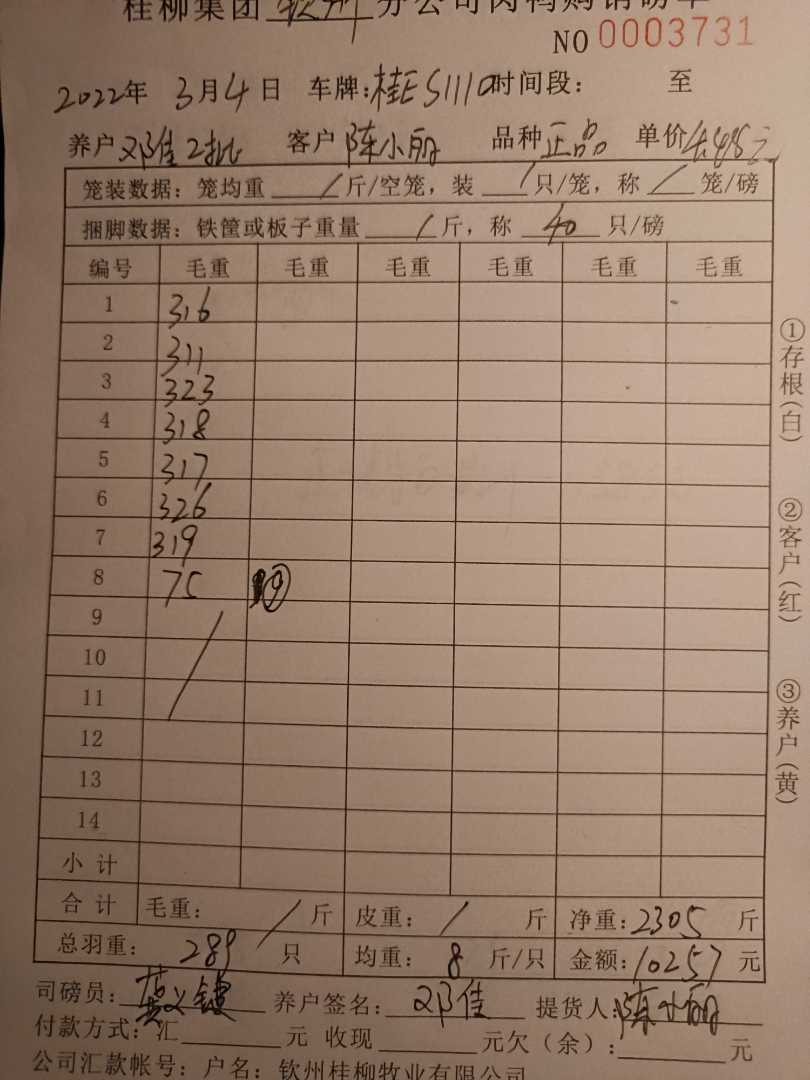 桂柳集团 钦州 分公司肉鸭购销磅单
NO 0003731
2022年 3月4日 车牌:桂E51110 时间段: 至
养户 邓佳2批 客户 陈小丽 品种 正品 单价 4.45元
笼装数据: 笼均重 / 斤/空笼, 装 / 只/笼, 称 / 笼/磅
捆脚数据: 铁筐或板子重量 / 斤, 称 40 只/磅
编号 毛重 毛重 毛重 毛重 毛重 毛重
1 316
2 311
3 323
4 318
5 317
6 326
7 319
8 75 ⑨
9
10
11
12
13
14
小计
合计 毛重: / 斤 皮重: / 斤 净重: 2305 斤
总羽重: 289 只 均重: 8 斤/只 金额: 10257 元
司磅员: 养户签名: 邓佳 提货人: 陈小丽
付款方式: 汇 元 收现 元欠(余): 元
公司汇款帐号: 户名: 钦州桂柳牧业有限公司
①存根(白)
②客户(红)
③养户(黄)